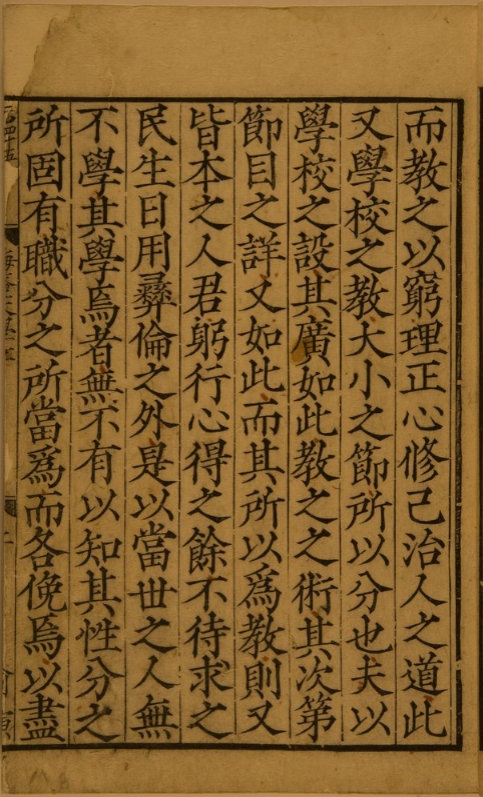 而教之以窮理正心修己治人之道此
又學校之教大小之節所以分也夫以
學校之設其廣如此教之之術其次第
節目之詳又如此而其所以爲教則又
皆本之人君躬行心得之餘不待求之
民生日用彞倫之外是以當世之人無
不學其學焉者無不有以知其性分之
所固有職分之所當爲而各俛焉以盡